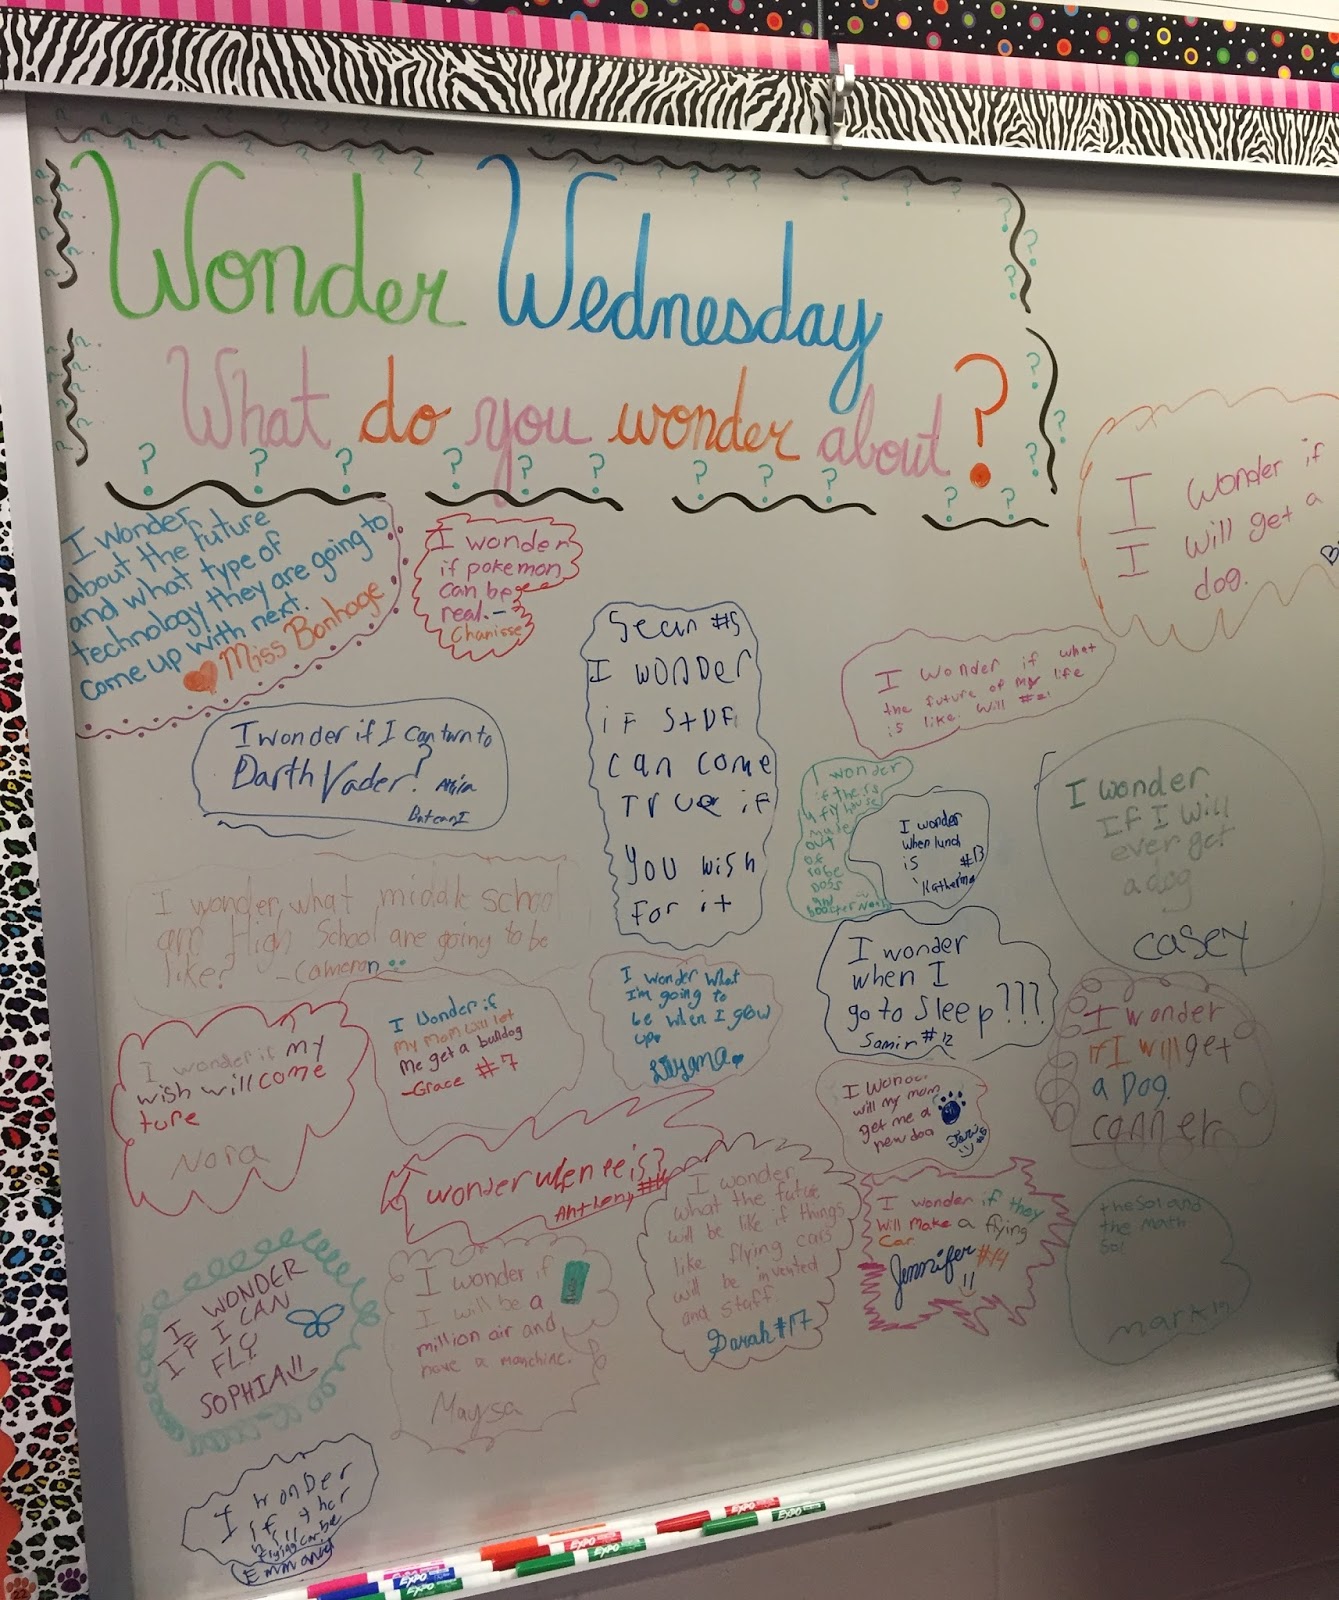 Wonder Wednesday
What do you wonder about?
I wonder
about the future
and what type of
technology they are going to
come up with next.
Miss Bonhage
I wonder
if pokemon
can be
real.-
Chanisse
Sean #5
I wonder
if
can come
True if
you wish
for it
I wonder if
I will get a
dog.
I wonder if what
the future of my life
is like. Will
I wonder if I can turn to
Darth Vader?
I wonder
I wonder
when lunch
is #13
I wonder
If I will
ever get
a dog
casey
I wonder, what middle school
High School are going to be
like? -Cameron
I wonder
when I
go to Sleep???
Samir #12
I wonder what
I'm going to
be when I grow
up
I wonder if
My mom will let
Me get a bulldog
-Grace #7
I wonder if my
wish will come
ture
Nora
I wonder
if I will get
a Dog.
conner
will my mom
get me a
new dog
wonder when
Anthony
I wonder
what the future
will be like if things
like flying cars
will be invented
and staff.
Sarah #17
I wonder if they
Will Make a flying
Car
Jennifer #14
the Sol and
the Math
Sol
mark
I WONDER
IF I CAN
FLY
SOPHIA!!
I wonder if
I will be a
million air and
have a manchine.
Maysa
I wonder
if
Emmanuel
EXPO
EXPO
EXPO
EXPO
EXPO
EXPO
22